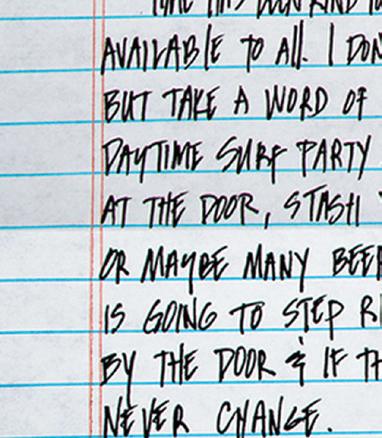 TIME THIS BEEN KIND
AVAILABLE TO ALL. I DON
BUT TAKE A WORD OF
DAYTIME SURF PARTY
AT THE DOOR, STASH
OR MAYBE MANY BEER
IS GOING TO STEP RI
BY THE DOOR & IF TH
NEVER CHANGE.